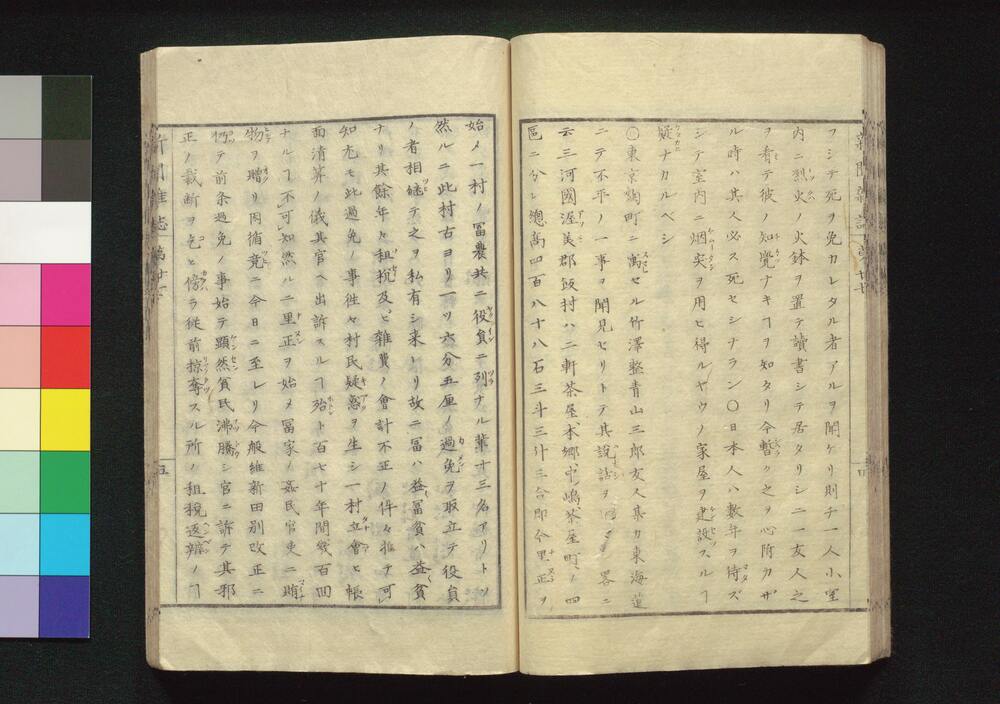 フシテ死ヲ免カレタル者アルヲ聞ケリ則チ一人小室
内ニ烈火ノ火鉢ヲ置テ讀書シテ居タリシニ一友人之
ヲ看テ彼ノ知覺ナキヿヲ知タリ今暫ク之ヲ心附カザ
ル時ハ其人必ス死セシナラン〇日本人ハ數年ヲ待ズ
シテ室内ニ烟突ヲ用ヒ得ルヤウノ家屋ヲ建設スルヿ
疑ナカルベシ
〇東京麹町ニ寓セル竹澤整青山三郎友人某カ東海道
ニテ不平ノ一事ヲ聞見セリトテ其説話ヲ 畧ニ
云三河國渥美郡 村ハ二軒茶屋本郷中嶋茶屋町ノ四
區ニ分レ總高四百八十八石三斗三升三合即今里正ヲ
始メ一村ノ冨農共ニ役員ニ列ナル輩十三名アリトソ
然ルニ此村古ヨリ一ツ六分五厘ノ過免ヲ取立テ役員
ノ者相繼テ之ヲ私有シ来レリ故ニ冨ハ益冨貧ハ益貧
ナリ其餘年々租税及ビ雜費ノ會計不正ノ件々推テ可
知尤モ此過免ノ事徃々村民疑惑ヲ生シ一村立會ヒ帳
面清算ノ儀其官ヘ出訴スルヿ殆ト百七十年間幾百回
ナルヿ不可知然ルニ里正ヲ始メ冨家ノ姦民官吏ニ賄
物ヲ贈リ因循竟ニ今日ニ至レリ今般維新田別改正ニ
テ前条過免ノ事始テ顯然貧民沸騰シ官ニ訴テ其邪
正ノ裁断ヲ乞ヒ傍ラ従前掠奪スル所ノ租税返辨ノヿ